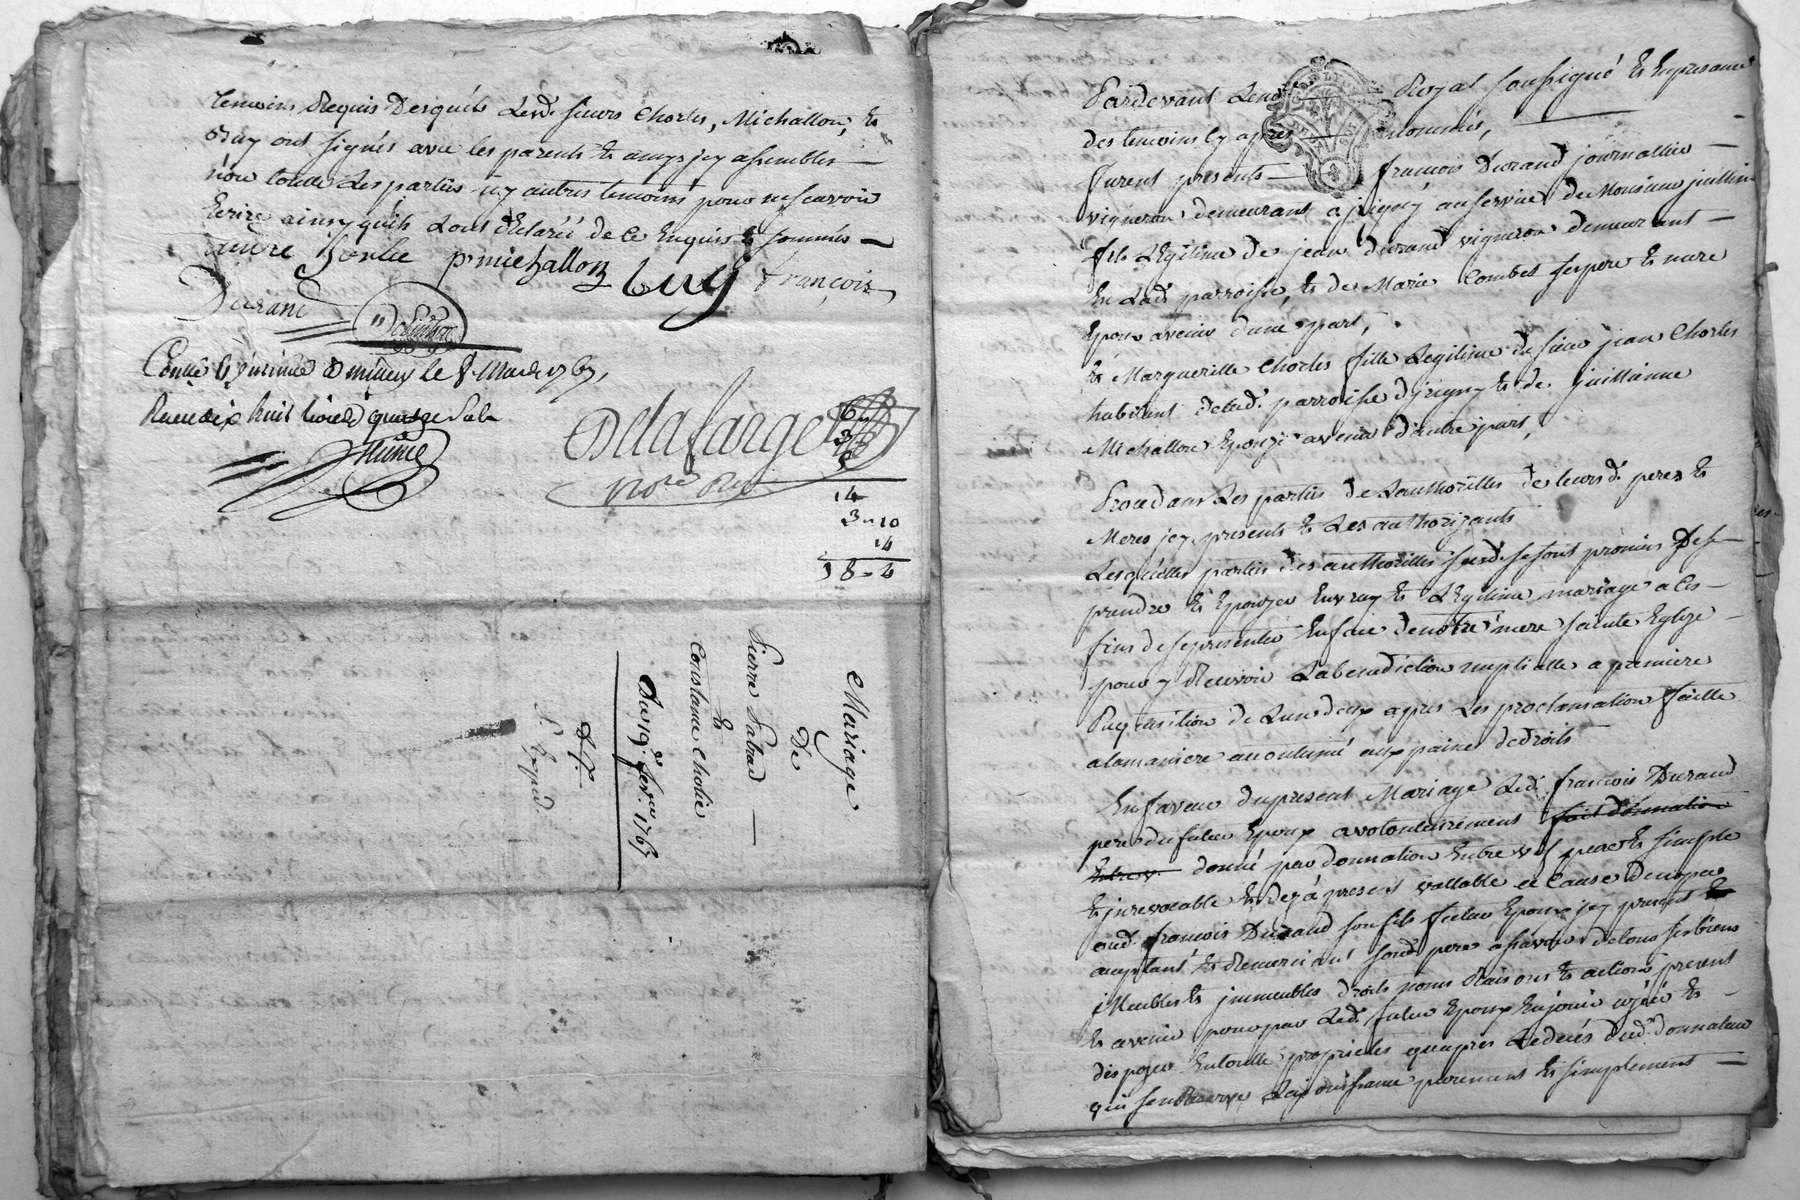 temoins Requis Desquels Lesd. sieurs Chorles, Michallon, Et
ont signés avec les parents Et amys jcy assembles
non toutte Les parties ny autres temoins pour ne scavoir
Ecrire ainsy quils Lont déclaré de ce Enquis Et sommés
andre p. michallon Luy françois
Durand
le 8 Mars 1767,
Receu dix huit livres quatre sols
Delafarge
Nore Ral
14
3-10
14
18-4
Mariage
De
Pierre Fabrad
Et
Constance Chorle
Du 19e. fevr. 1767
Expéd.
Pardevant Le Royal soussigné Et En presance
des temoins Cy après nommés,
furent presents françois Durand journallier
vigneron demeurant a jrigny au service de Monsieur jullien
fils Légitime de jean durand vigneron demeurant
En Lad. parroisse, Et de Marie Combet ses pere Et mere
Epoux avenir dune part,
Et Marguerille Chorles fille Legitime de sieur jean Chorles
habitant de lad. parroisse djrigny Et de Guillianne
Michallon Epouze avenir dautre part,
Procedant Les parties de Lauthorittes de leursd. peres Et
Meres jcy presents Et Les authorizants
Lesquelles parties des authorittes susd. se sont promis De se
prendre Et Epouzer En vray Et Légitime mariage a Ces
fins de se presenter En face de notre mere sainte Eglize
pour y Recevoir La benediction nuptialle a premiere
Requisition de Lun deux apres Les proclamation faitte
a la maniere accoutumé aux paines de droits
En faveur du present Mariage Led. françois Durand
pere du futur Epoux a volontairement fait donnation
Entre v. donné par donnation Entre vifs pure Et simple
Et jrrevocable Et dez á present vallable et Cause
aud. françois Durand son fils futur Epoux jcy present Et
acceptant Et Remerciant sond. pere a scavoir de tous ses biens
Meubles Et jmmeubles droits noms Raisons Et actions present
Et avenir pour par Led. futur Epoux En jouir uzer Et
dispozer En toutte proprietés qu'aprés Le decés dud. donnateur
qui sen Reserve La jouissance purement Et simplement